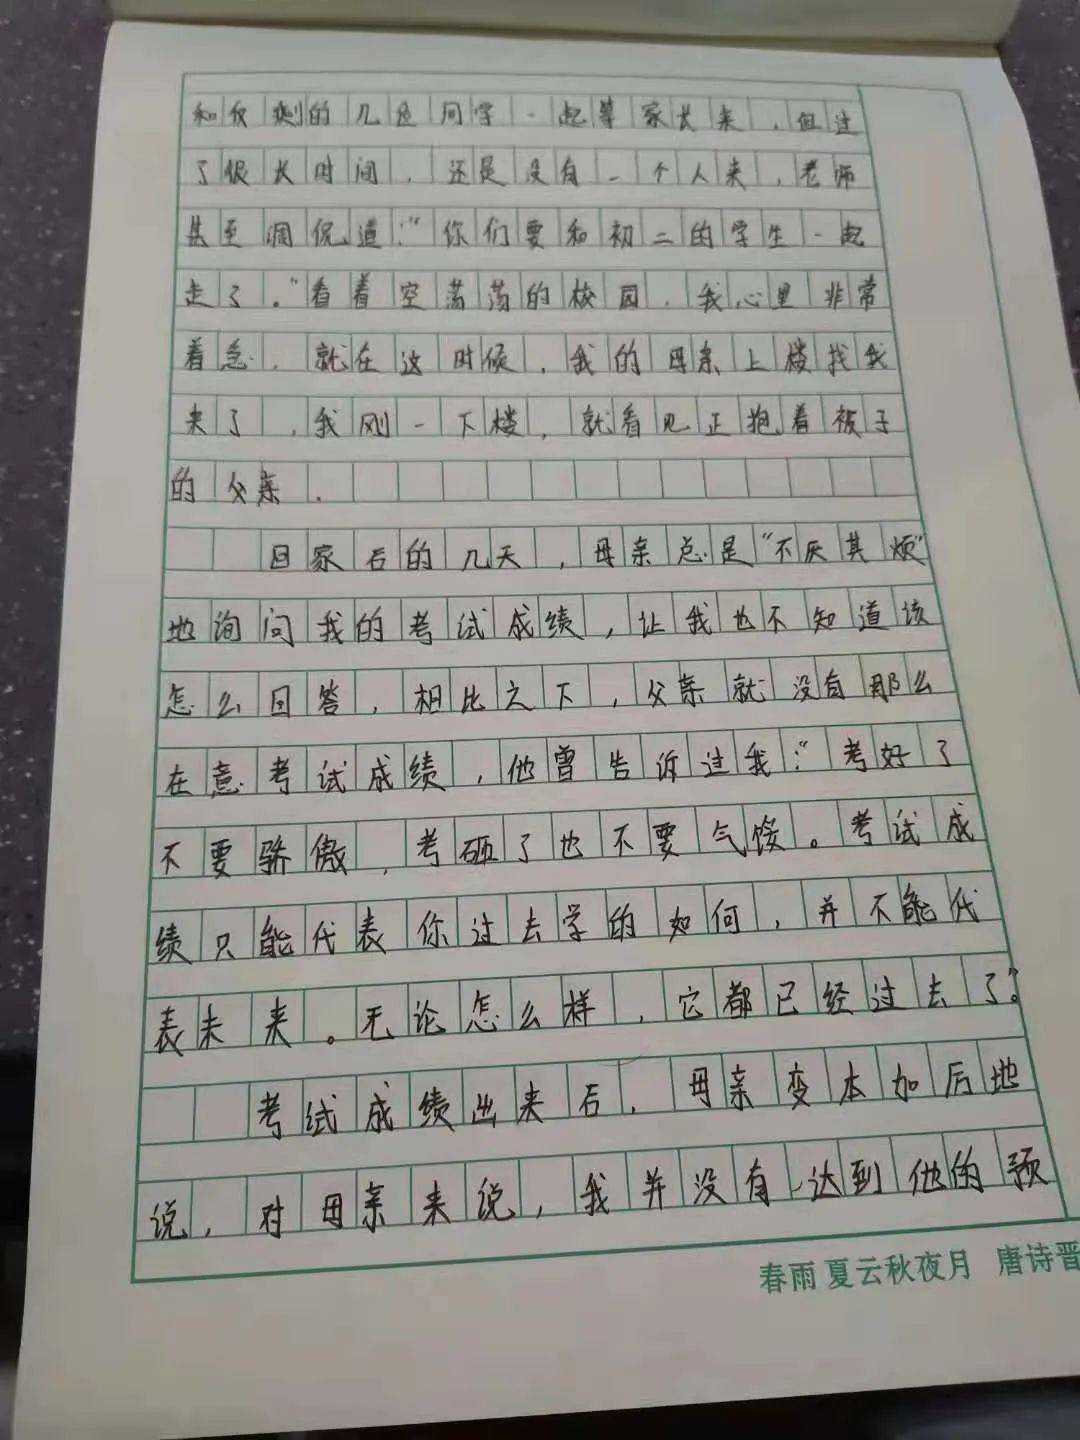 和我剩的几位同学一起等家长来，但过
了很长时间，还是没有一个人来，老师
甚至调侃道：“你们要和初二的学生一起
走了。”看着空荡荡的校园，我心里非常
着急，就在这时候，我的母亲上楼找我
来了，我刚一下楼，就看见正抱着被子
的父亲．
回家后的几天，母亲总是“不厌其烦”
地询问我的考试成绩，让我也不知道该
怎么回答，相比之下，父亲就没有那么
在意考试成绩，他曾告诉过我：“考好了
不要骄傲，考砸了也不要气馁。考试成
绩只能代表你过去学的如何，并不能代
表未来。无论怎么样，它都已经过去了。”
考试成绩出来后，母亲变本加后地
说，对母亲来说，我并没有达到他的预
春雨 夏云秋夜月 唐诗晋